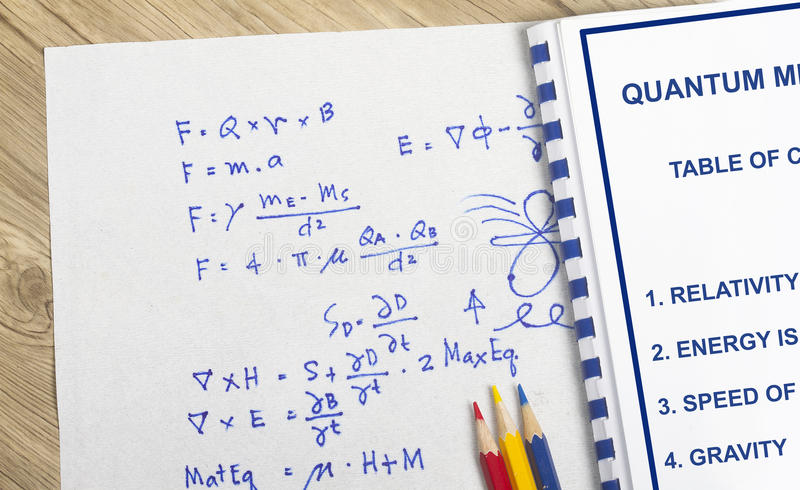 F = Q × v × B
F = m.a
F = γ (mE - MS) / d2
F = 4 · π · μ (QA · QB) / d2
E = ∇ϕ - ∂
SD = ∂D / ∂t
∇ × H = S + ∂D / ∂t · 2 MaxEq.
∇ × E = ∂B / ∂t
MatEq = μ · H + M
QUANTUM ME
TABLE OF C
1. RELATIVITY
2. ENERGY IS
3. SPEED OF
4. GRAVITY
dreamstime